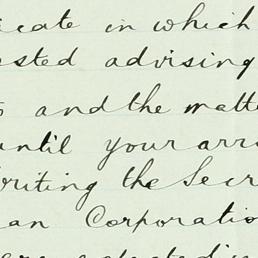 icate in which
ested advising
and the matte
until your arri
riting the Secr
an Corporatio